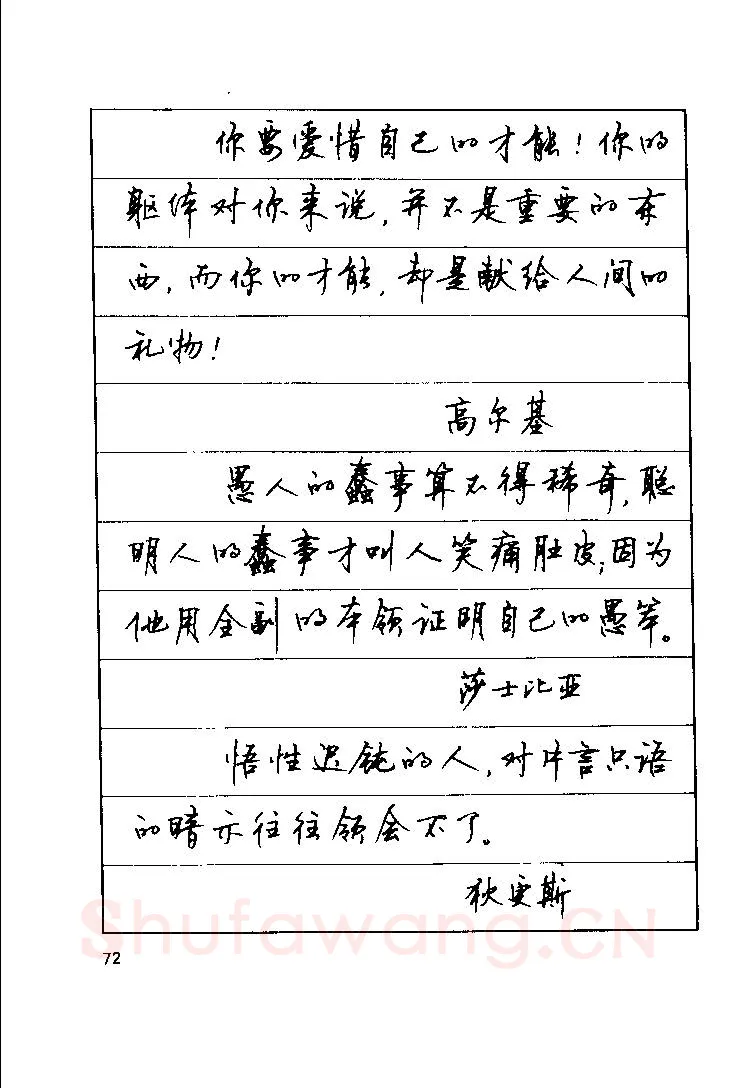 你要爱惜自己的才能！你的
躯体对你来说，并不是重要的东
西，而你的才能，却是献给人间的
礼物！
高尔基
愚人的蠢事算不得稀奇，聪
明人的蠢事才叫人笑痛肚皮；因为
他用全副的本领证明自己的愚笨。
莎士比亚
悟性迟钝的人，对片言只语
的暗示往往领会不了。
狄更斯
Shufawang.CN
72